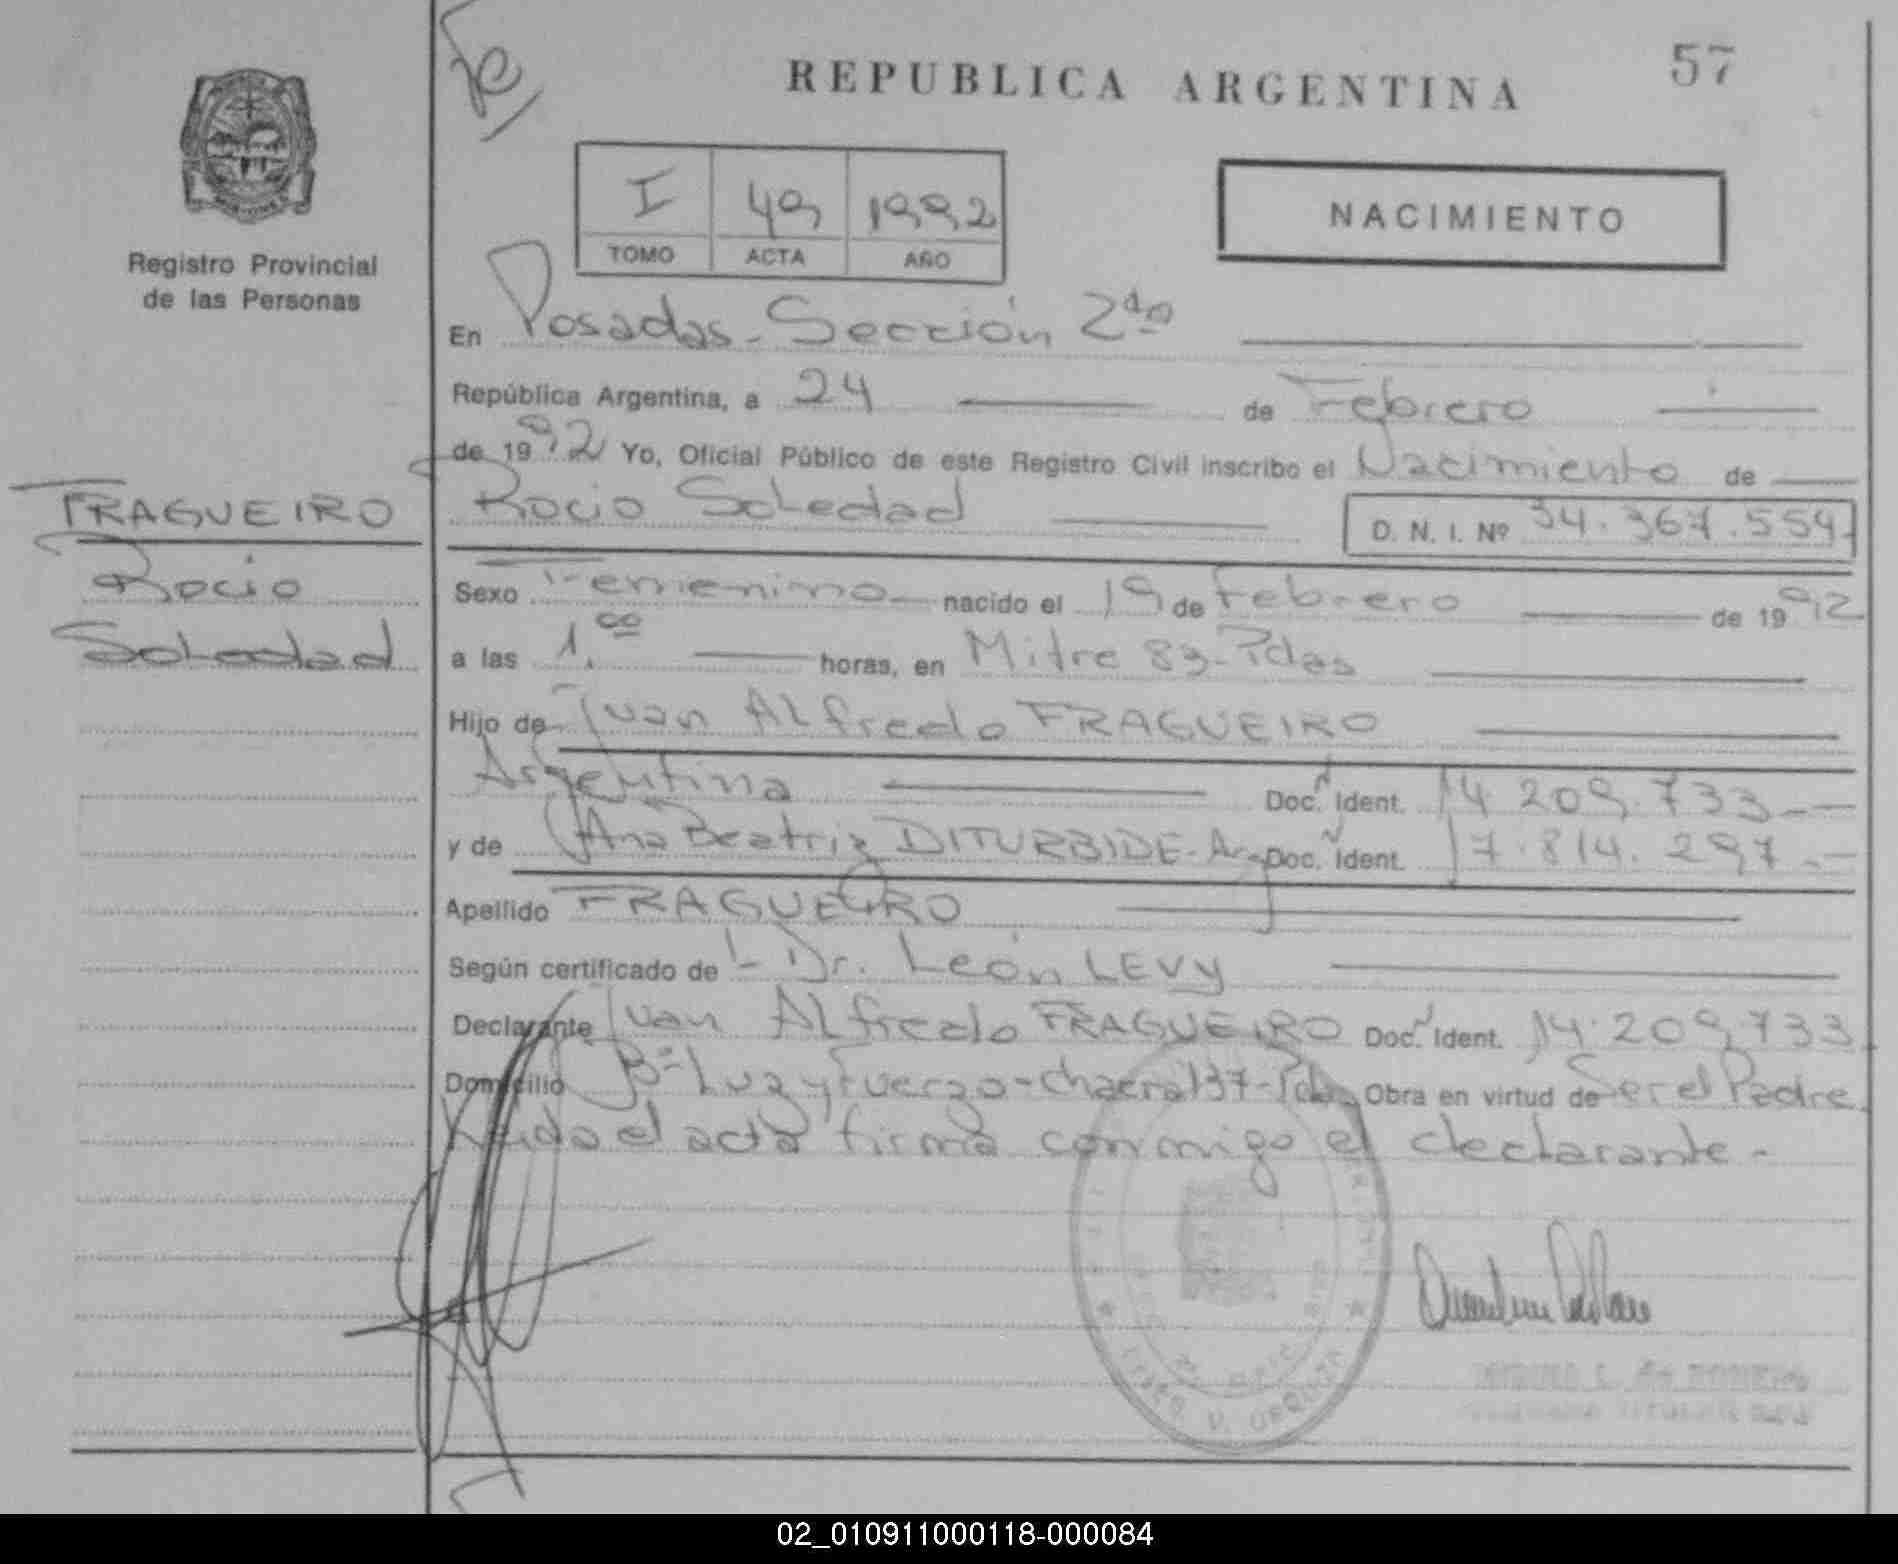 57
REPUBLICA ARGENTINA
I 49 1992
TOMO ACTA AÑO
NACIMIENTO
Registro Provincial
de las Personas
FRAGUEIRO
Rocio
Soledad
En Posadas - Sección 2da
República Argentina, a 24 de Febrero
de 1992 Yo, Oficial Público de este Registro Civil inscribo el Nacimiento de
Rocio Soledad D. N. I. Nº 34.367.554
Sexo Femenino nacido el 19 de Febrero de 1992
a las 1.00 horas, en Mitre 83 - Pdas
Hijo de Juan Alfredo FRAGUEIRO
Argentina Doc. Ident. 14.209.733
y de Ana Beatriz DITURBIDE - Arg Doc. Ident. 17.814.297
Apellido FRAGUEIRO
Según certificado de Dr. León LEVY
Declarante Juan Alfredo FRAGUEIRO Doc. Ident. 14.209.733
Domicilio Bº Luz y Fuerza - chacra 137 - Pdas Obra en virtud de Ser el Padre
Leida el acta firma conmigo el declarante -
02_010911000118-000084